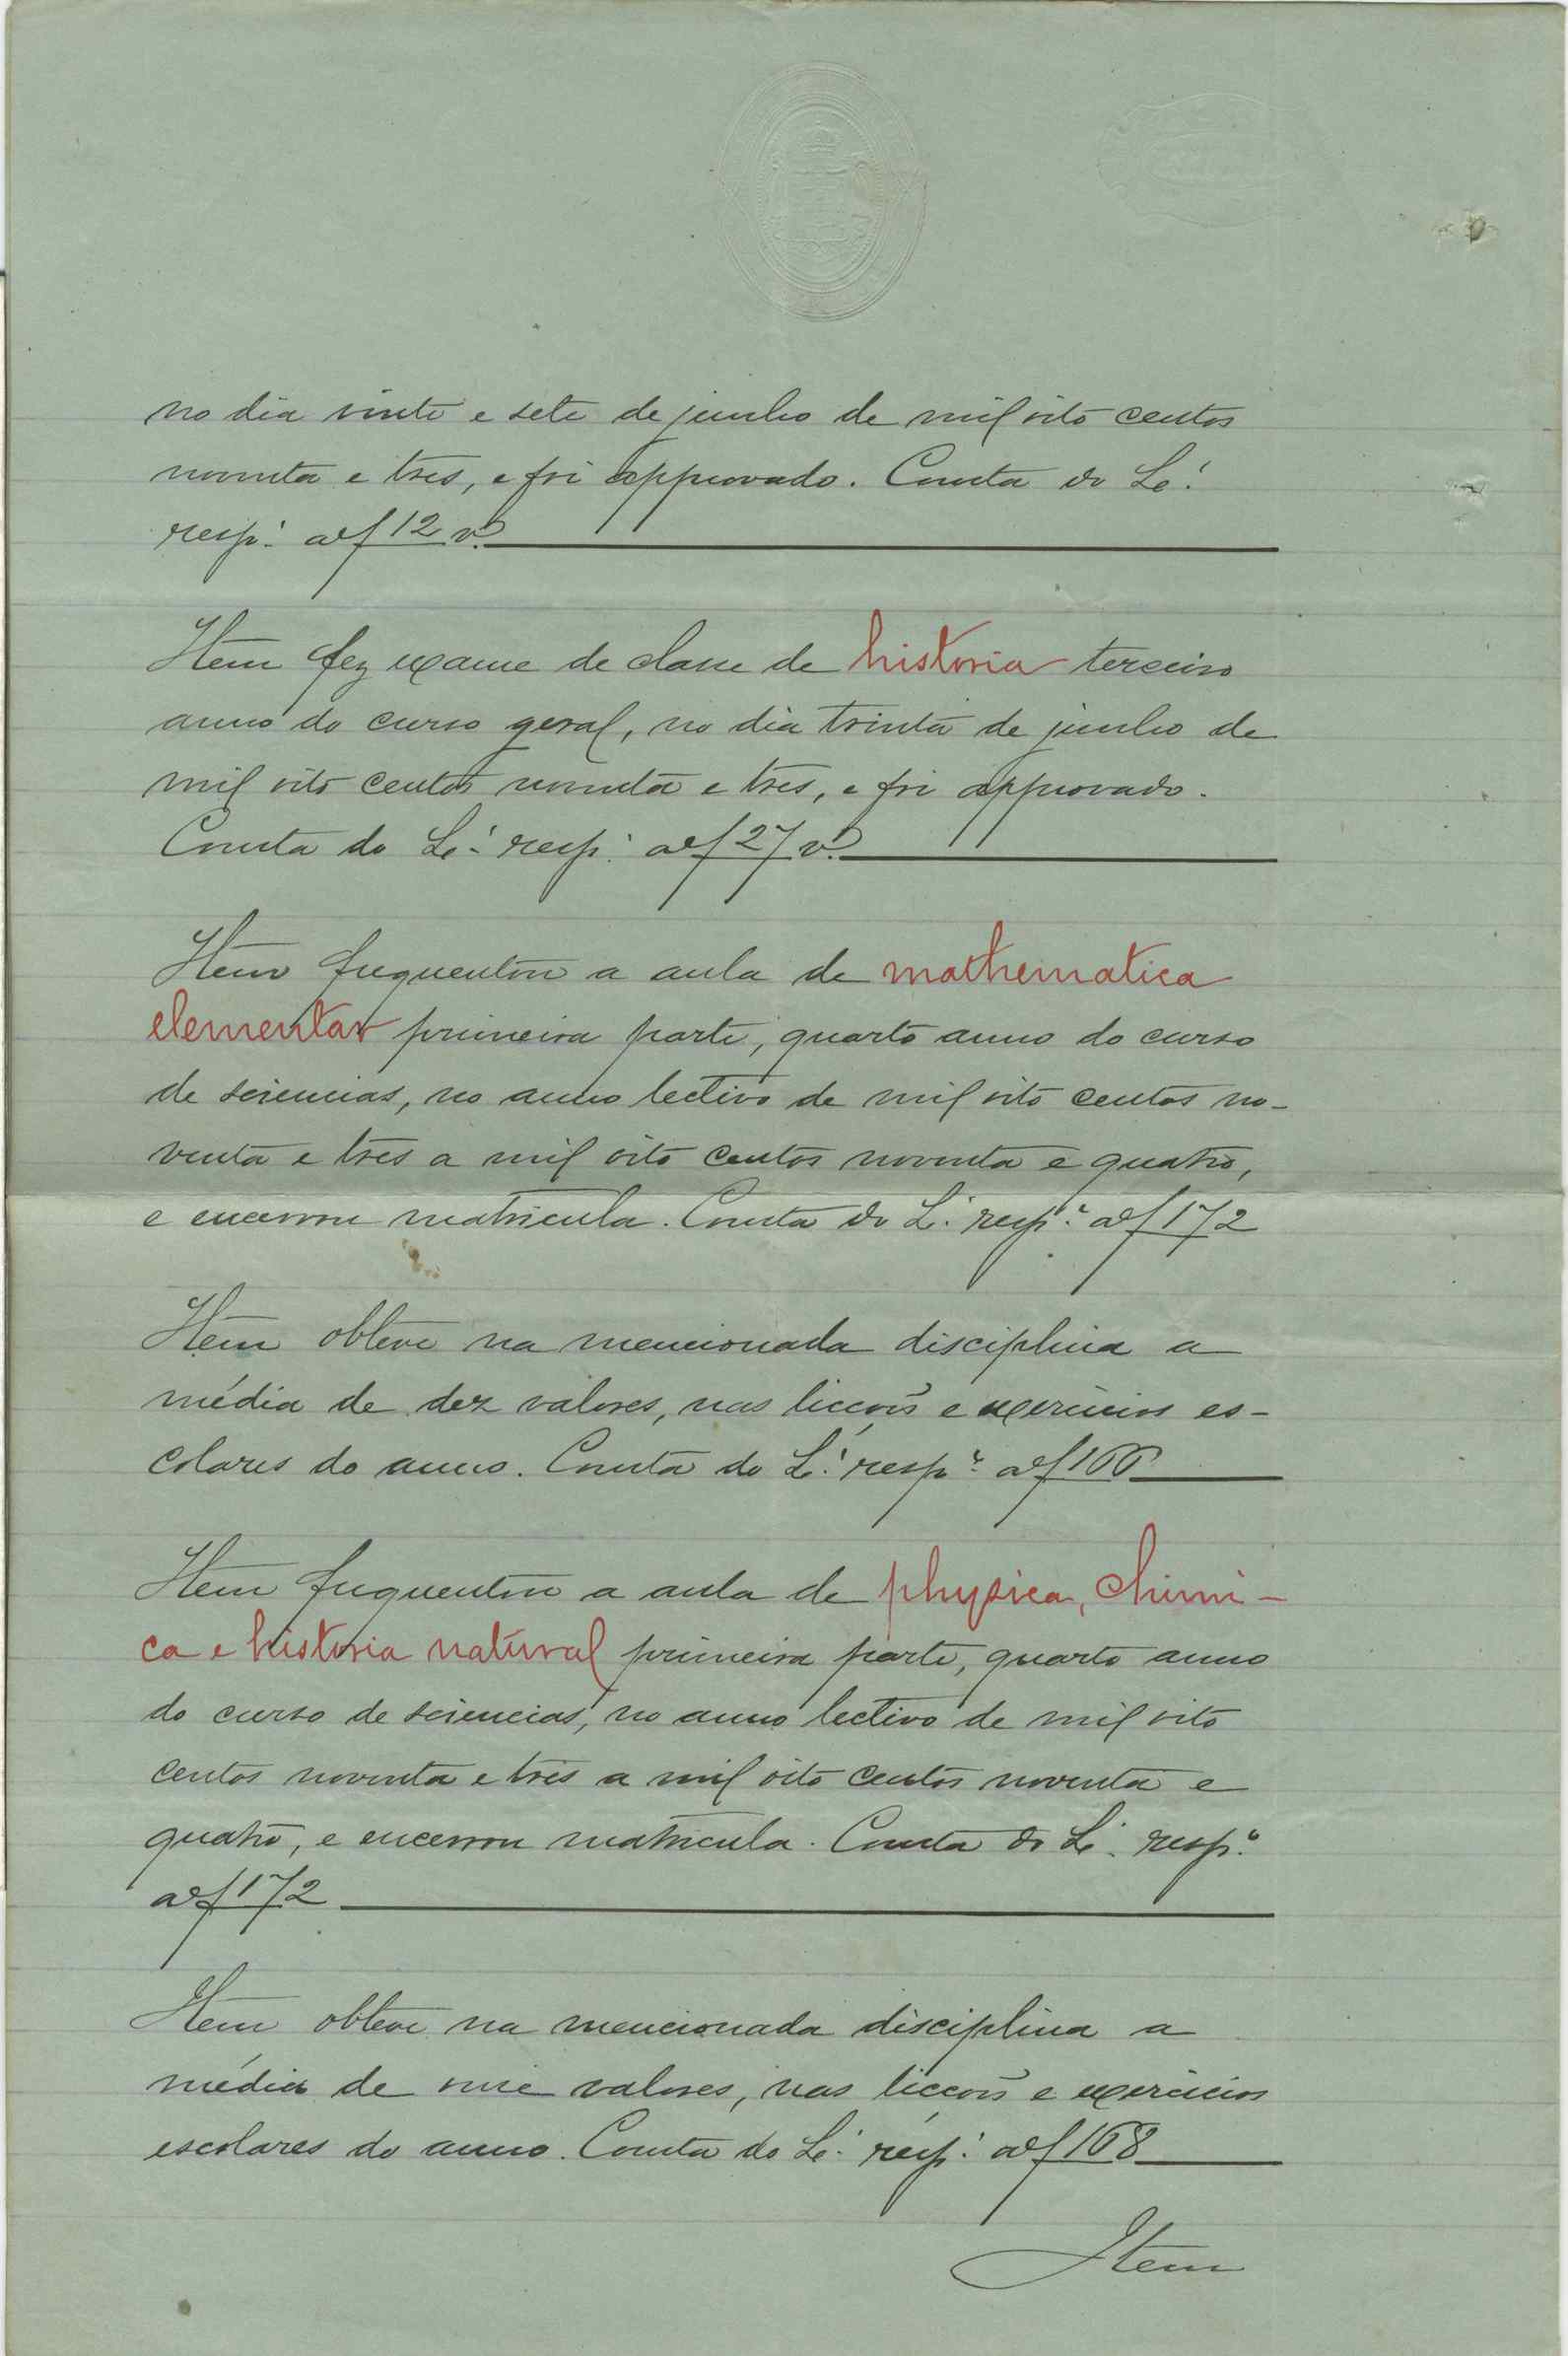 no dia vinte e sete de junho de mil oito centos
noventa e tres, e foi approvado. Consta do Lº.
resp.º a f 12 v.º
Item fez exame de classe de historia terceiro
anno do curso geral, no dia trinta de junho de
mil oito centos noventa e tres, e foi approvado.
Consta do Lº. resp.º a f 27 v.º
Item frequentou a aula de mathematica
elementar primeira parte, quarto anno do curso
de sciencias, no anno lectivo de mil oito centos no-
venta e tres a mil oito centos noventa e quatro,
e encerrou matricula. Consta do L.º resp.º a f 172
Item obteve na mencionada disciplina a
média de dez valores, nas licções e exercicios es-
colares do anno. Consta do Lº. resp.º a f 166
Item frequentou a aula de physica, chimi-
ca e historia natural primeira parte, quarto anno
do curso de sciencias, no anno lectivo de mil oito
centos noventa e tres a mil oito centos noventa e
quatro, e encerrou matricula. Consta do Lº. resp.º
a f 172
Item obteve na mencionada disciplina a
média de onze valores, nas licções e exercicios
escolares do anno. Consta do Lº. resp.º a f 168
Item